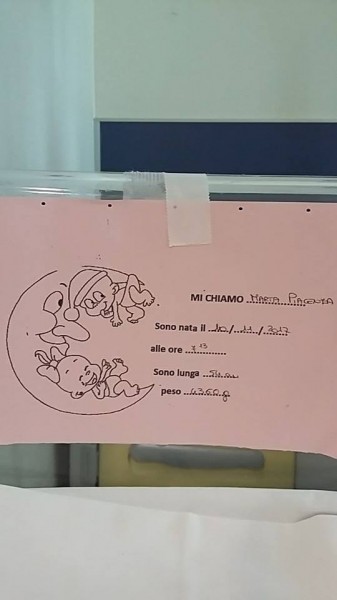 MI CHIAMO MARTA PIACENZA
Sono nata il 10/11/2017
alle ore
Sono lunga
peso 4360 g